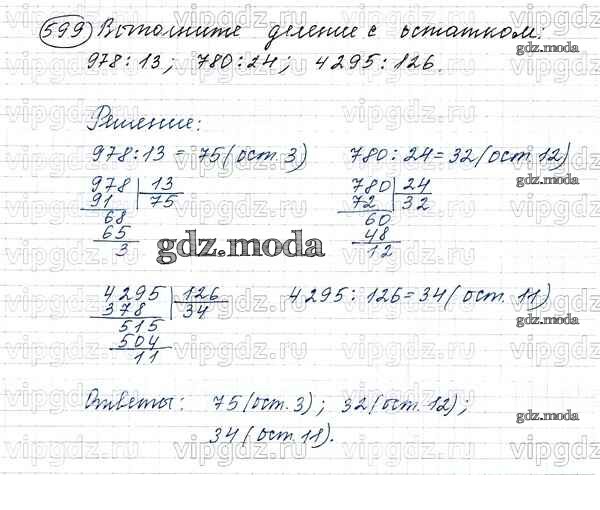 599 Выполните деление с остатком:
978:13; 780:24; 4295:126.
Решение:
978:13 = 75(ост.3) 780:24=32(ост.12)
978 13
91 75
68
65
3
780 24
72 32
60
48
12
4295 126
378 34
515
504
11
4295:126=34(ост.11)
Ответы: 75(ост.3); 32(ост.12);
34(ост.11).
gdz.moda
gdz.moda
gdz.moda
gdz.moda
gdz.moda
vipgdz.ru